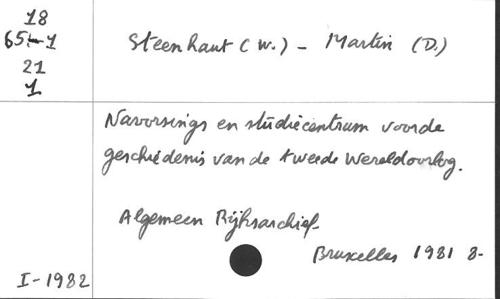 18
65-1
21
1
Steenhaut (W.) - Martin (D.)
Navorsings en studiecentrum voorde
geschiedenis van de tweede Wereldoorlog.
Algemeen Rijksarchief
Bruxelles 1981 8-
I-1982